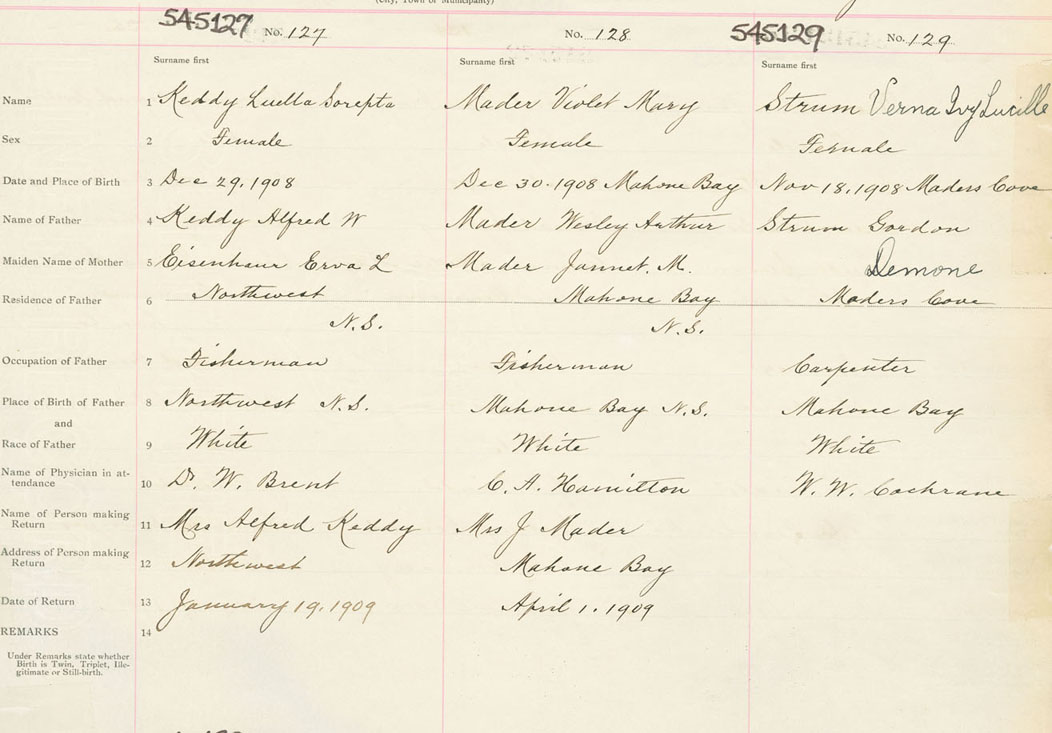 (City, Town or Municipality)
545127 No. 127
No. 128
545129 No. 129
Surname first
Surname first
Surname first
Name 1 Keddy Luella Sorepta Mader Violet Mary Strum Verna Ivy Lucille
Sex 2 Female Female Female
Date and Place of Birth 3 Dec 29, 1908 Dec 30-1908 Mahone Bay Nov 18, 1908 Maders Cove
Name of Father 4 Keddy Alfred W Mader Wesley Arthur Strum Gordon
Maiden Name of Mother 5 Eisenhaur Erva L Mader Jannet. M. Demone
Residence of Father 6 Northwest Mahone Bay Maders Cove
N.S. N.S.
Occupation of Father 7 Fisherman Fisherman Carpenter
Place of Birth of Father 8 Northwest N.S. Mahone Bay N.S. Mahone Bay
and
Race of Father 9 White White White
Name of Physician in at-
tendance 10 Dr. W. Brent C. A. Hamilton W. W. Cochrane
Name of Person making
Return 11 Mrs Alfred Keddy Mrs J Mader
Address of Person making
Return 12 Northwest Mahone Bay
Date of Return 13 January 19, 1909 April 1. 1909
REMARKS 14
Under Remarks state whether
Birth is Twin, Triplet, Ille-
gitimate or Still-birth.